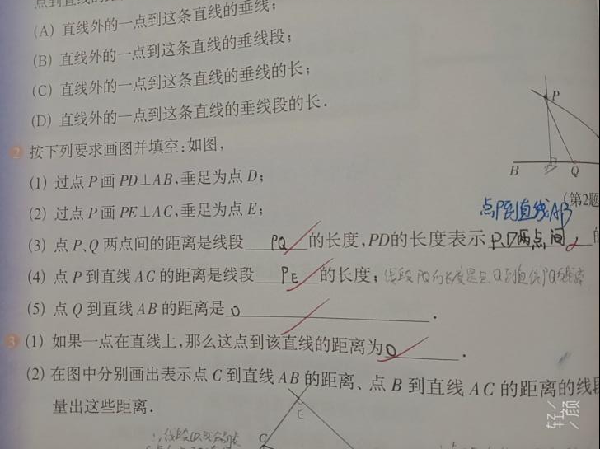 (A) 直线外的一点到这条直线的垂线;
(B) 直线外的一点到这条直线的垂线段;
(C) 直线外的一点到这条直线的垂线的长;
(D) 直线外的一点到这条直线的垂线段的长.
2 按下列要求画图并填空:如图,
(1) 过点 P 画 PD⊥AB,垂足为点 D;
(2) 过点 P 画 PE⊥AC,垂足为点 E;
P
B D Q
(第2题
点P到直线AB
(3) 点 P、Q 两点间的距离是线段 PQ 的长度,PD的长度表示 P、D两点间 的
(4) 点 P 到直线 AC 的距离是线段 PE 的长度;
(5) 点 Q 到直线 AB 的距离是 0 .
3 (1) 如果一点在直线上,那么这点到该直线的距离为 0 .
(2) 在图中分别画出表示点 C 到直线 AB 的距离、点 B 到直线 AC 的距离的线段
量出这些距离.
E
C
轻颜